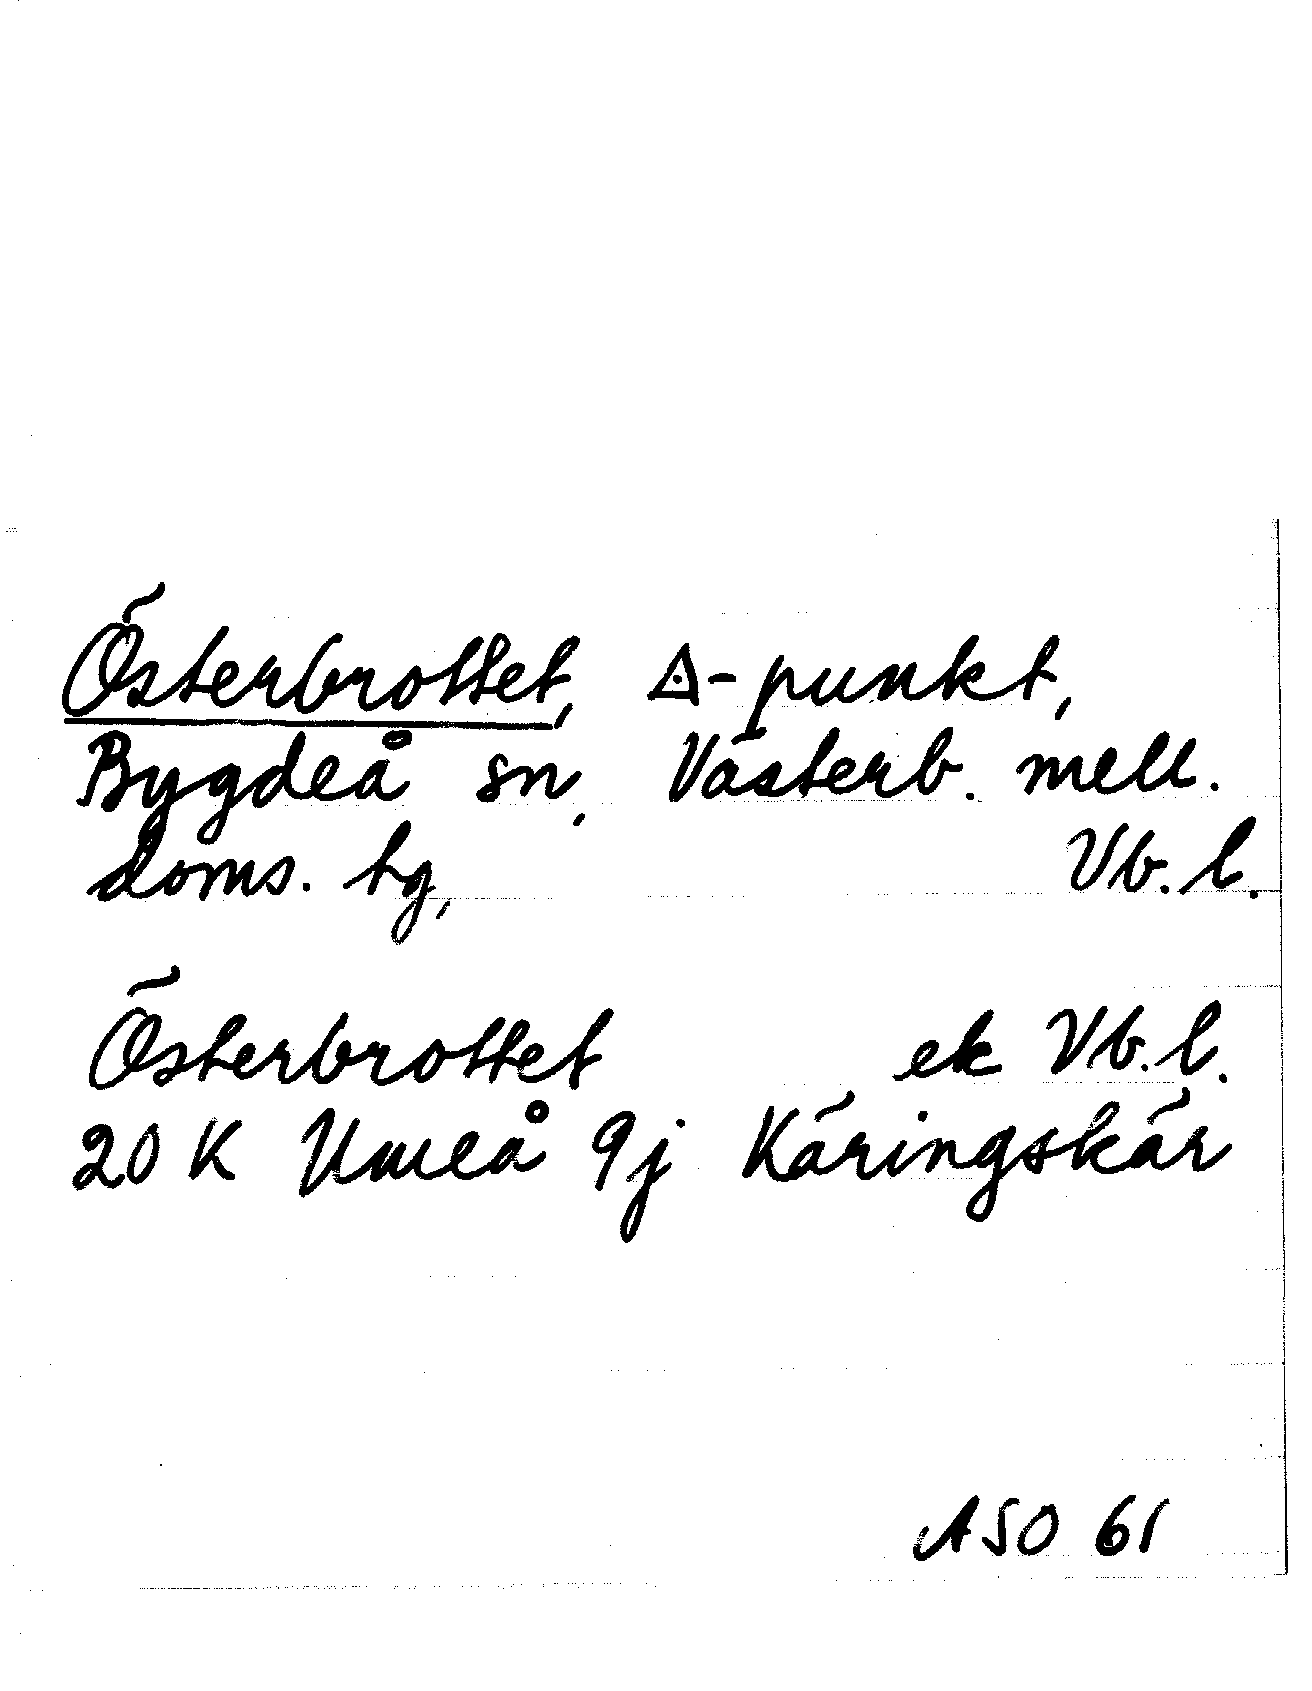 Österbrottet, ◬-punkt,
Bygdeå sn, Västerb. mell.
doms. tg, Vb. l.
Österbrottet ek Vb. l.
20 K Umeå 9j Käringskär
ASO 61